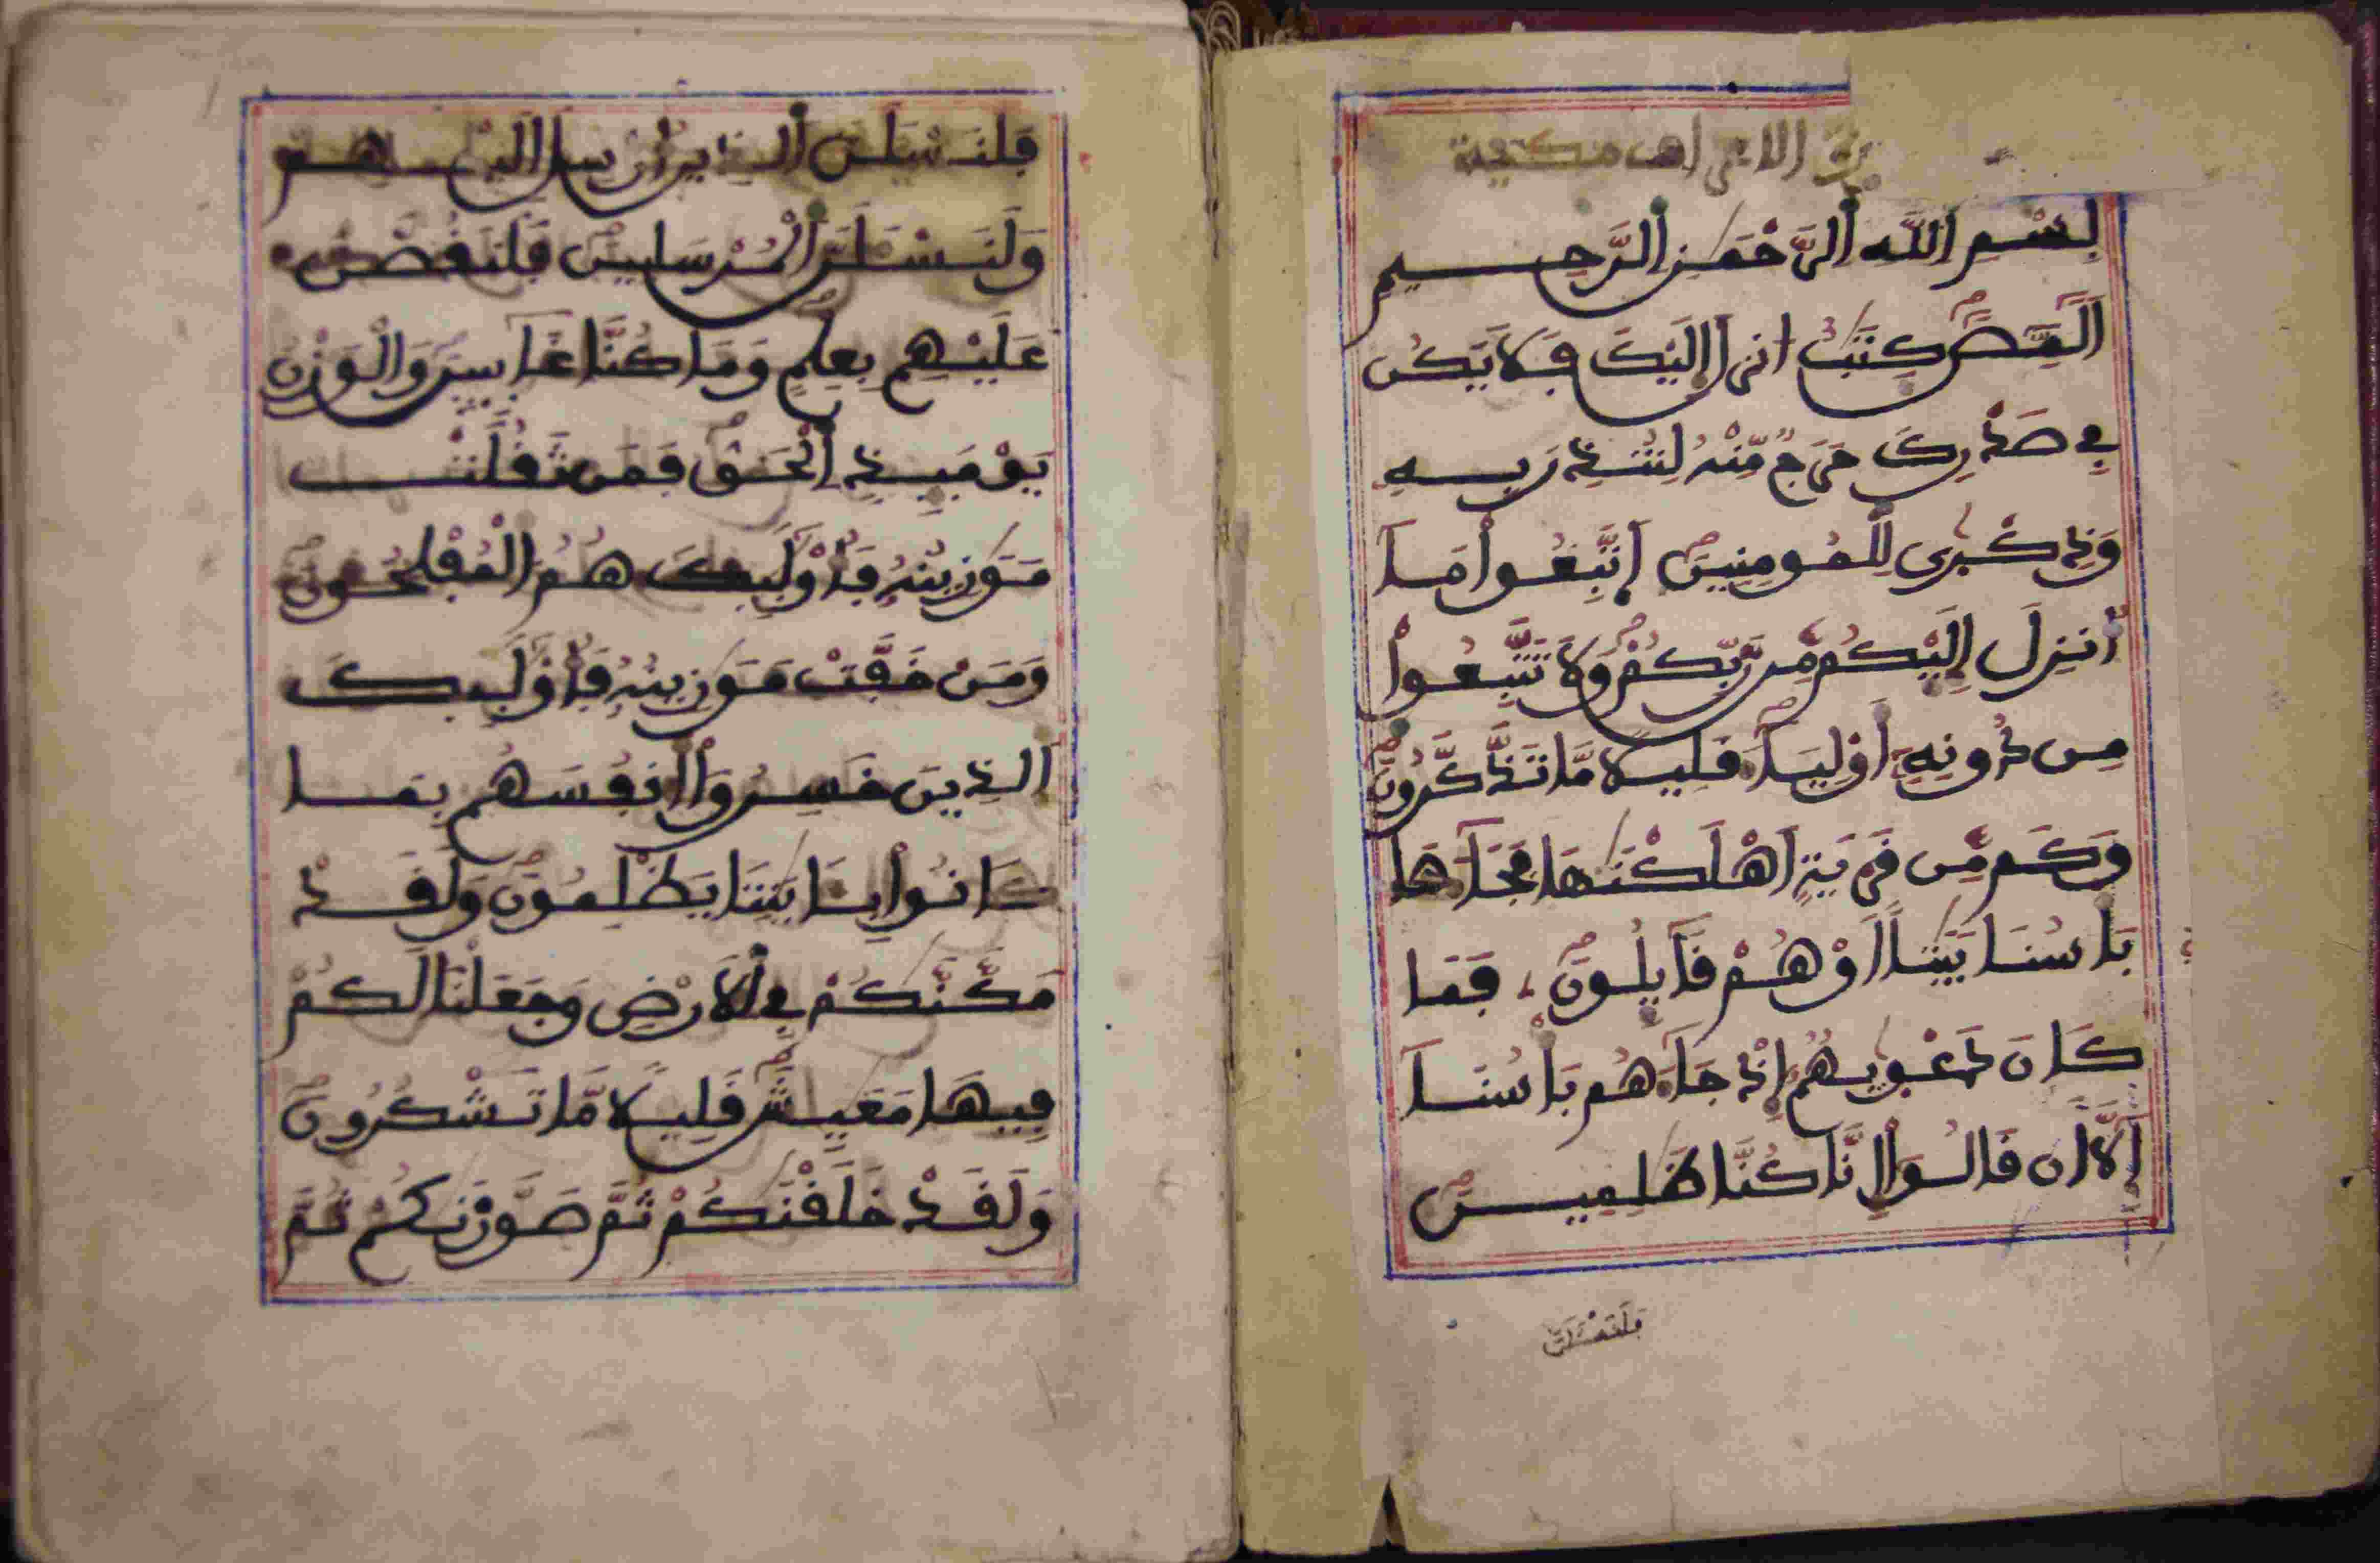 الاعراف مكية
بِسْمِ اللَّهِ الرَّحْمَٰنِ الرَّحِيمِ
الٓمٓصٓ كِتَٰبٌ انزل إِلَيْكَ فَلَا يَكُن
فِي صَدْرِكَ حَرَجٌ مِّنْهُ لِتُنذِرَ بِهِ
وَذِكْرَىٰ لِلْمُومِنِينَ اَتَّبِعُواْ مَا
أُنزِلَ إِلَيْكُم مِّن رَّبِّكُمْ وَلَا تَتَّبِعُواْ
مِن دُونِهِ أَوْلِيَآ قَلِيلًا مَّا تَذَّكَّرُونَ
وَكَم مِّن قَرْيَةٍ اَهْلَكْنَٰهَا فَجَآهَا
بَأْسُنَا بَيَٰتًا اَوْ هُمْ قَآيِلُونَ فَمَا
كَانَ دَعْوٰيهُمْ إِذْ جَآهُم بَأْسُنَآ
إِلَّآ أَن قَالُواْ إِنَّا كُنَّا ظَٰلِمِينَ
فَلَنَسْـَٔلَنَّ
فَلَنَسْـَٔلَنَّ الذِينَ أُرْسِلَ إِلَيْهِمْ
وَلَنَسْـَٔلَنَّ الْمُرْسَلِينَ فَلَنَقُصَّنَّ
عَلَيْهِم بِعِلْمٍ وَمَا كُنَّا غَآبِينَ وَالْوَزْنُ
يَوْمَيِذٍ الْحَقُّ فَمَن ثَقُلَتْ
مَوَٰزِينُهُ فَأُوْلَٰٓيِكَ هُمُ الْمُفْلِحُونَ
وَمَنْ خَفَّتْ مَوَٰزِينُهُ فَأُوْلَٰٓيِكَ
الذِينَ خَسِرُواْ أَنفُسَهُم بِمَا
كَانُواْ بِـَٔايَٰتِنَا يَظْلِمُونَ وَلَقَدْ
مَكَّنَّٰكُمْ فِي الْأَرْضِ وَجَعَلْنَا لَكُمْ
فِيهَا مَعَٰيِشَ قَلِيلًا مَّا تَشْكُرُونَ
وَلَقَدْ خَلَقْنَٰكُمْ ثُمَّ صَوَّرْنَٰكُمْ ثُمَّ